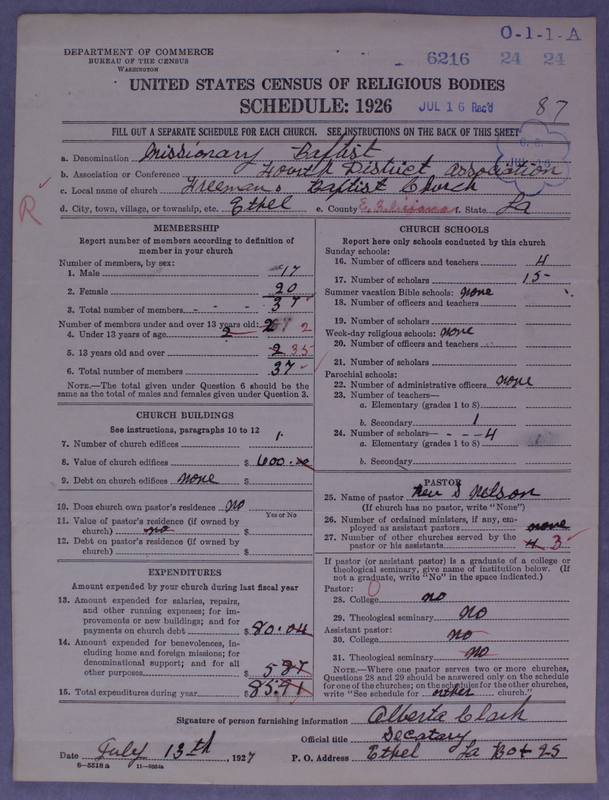 O-1-1-A
DEPARTMENT OF COMMERCE
BUREAU OF THE CENSUS
WASHINGTON
6216 24 24
UNITED STATES CENSUS OF RELIGIOUS BODIES
SCHEDULE: 1926
JUL 16 Rec'd
87
FILL OUT A SEPARATE SCHEDULE FOR EACH CHURCH. SEE INSTRUCTIONS ON THE BACK OF THIS SHEET
a. Denomination Missionary Baptist
b. Association or Conference Fourth District Association
c. Local name of church Freemans Baptist Church
R
d. City, town, village, or township, etc. Ethel e. County E. Feliciana f. State La
MEMBERSHIP
Report number of members according to definition of
member in your church
Number of members, by sex:
1. Male 17
2. Female 20
3. Total number of members 37
Number of members under and over 13 years old:
4. Under 13 years of age 2 2
5. 13 years old and over 2 35
6. Total number of members 37
NOTE.—The total given under Question 6 should be
same as the total of males and females given under Question 3.
CHURCH BUILDINGS
See instructions, paragraphs 10 to 12
7. Number of church edifices 1
8. Value of church edifices $ 600.00
9. Debt on church edifices none $
10. Does church own pastor's residence no
Yes or No
11. Value of pastor's residence (if owned by
church) no $
12. Debt on pastor's residence (if owned by
church) $
EXPENDITURES
Amount expended by your church during last fiscal year
13. Amount expended for salaries, repairs,
and other running expenses; for im-
provements or new buildings; and for
payments on church debt $ 80.04
14. Amount expended for benevolences, in-
cluding home and foreign missions; for
denominational support; and for all
other purposes 5 87
15. Total expenditures during year $ 85.91
CHURCH SCHOOLS
Report here only schools conducted by this church
Sunday schools:
16. Number of officers and teachers 4
17. Number of scholars 15
Summer vacation Bible schools: none
18. Number of officers and teachers
19. Number of scholars
Week-day religious schools: none
20. Number of officers and teachers
21. Number of scholars
Parochial schools:
22. Number of administrative officers none
23. Number of teachers—
a. Elementary (grades 1 to 8)
b. Secondary 1
24. Number of scholars— 4
a. Elementary (grades 1 to 8)
b. Secondary
PASTOR
25. Name of pastor Rev S Nelson
(If church has no pastor, write "None")
26. Number of ordained ministers, if any, em-
ployed as assistant pastors none
27. Number of other churches served by the
pastor or his assistants 4 3
If pastor (or assistant pastor) is a graduate of a college or
theological seminary, give name of institution below. (If
not a graduate, write "No" in the space indicated.)
Pastor:
28. College no
29. Theological seminary no
Assistant pastor:
30. College no
31. Theological seminary no
NOTE.—Where one pastor serves two or more churches,
Questions 28 and 29 should be answered only on the schedule
for one of the churches; on the schedules for the other churches,
write "See schedule for other church."
Signature of person furnishing information Alberta Clark
Official title Secatary
Date July 13th, 1927 P. O. Address Ethel La Box 25
6-5518a 11-9554a